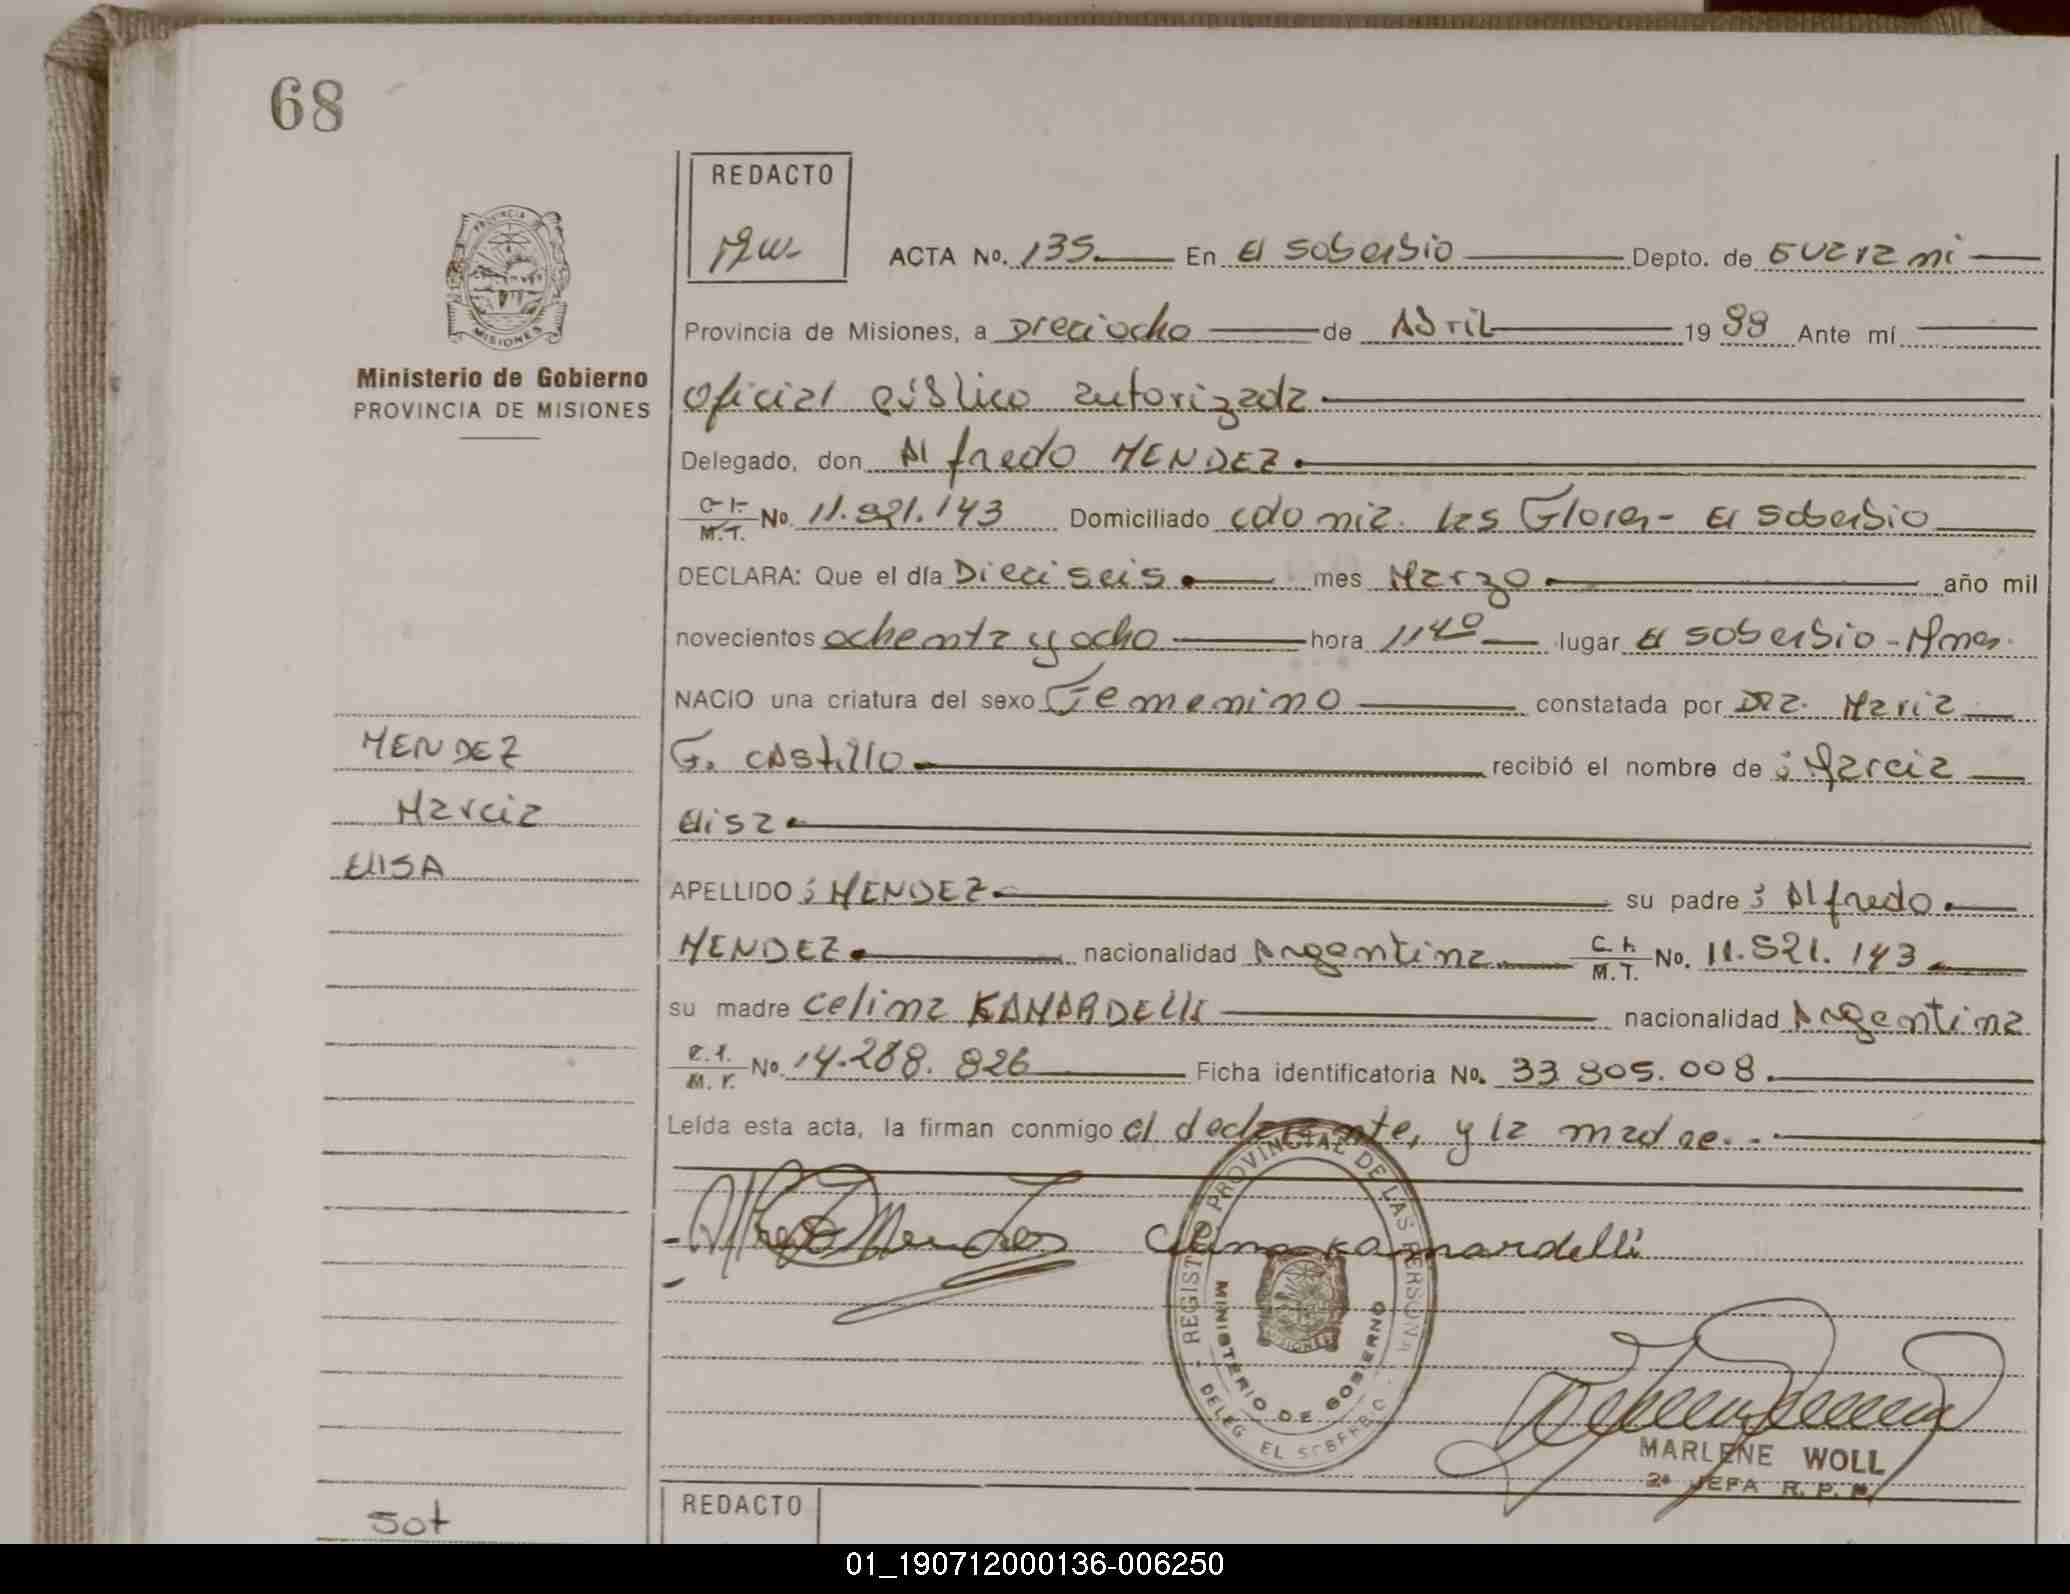 68
REDACTO
ACTA No. 135. En El Soberbio Depto. de Guarani
Provincia de Misiones, a Dieciocho de Abril 1988 Ante mí
PROVINCIA DE
MISIONES
Ministerio de Gobierno
PROVINCIA DE MISIONES
Oficial público autorizada
Delegado, don Alfredo MENDEZ.
C.I. M.T. No. 11.921.143 Domiciliado Colonia. Las Flores - El Soberbio
DECLARA: Que el día Dieciseis mes Marzo año mil
novecientos ochenta y ocho hora 1140 lugar El Soberbio - Mnes.
NACIO una criatura del sexo Femenino constatada por DRA. Maria
G. CAStillo recibió el nombre de ; Marcia
Elisa
MENDEZ
Marcia
ELISA
APELLIDO ; MENDEZ su padre ; Alfredo
MENDEZ nacionalidad Argentina C.I. M.T. No. 11.921.143
su madre Celina KAMARDELLI nacionalidad Argentina
C.I. M.T. No. 14.288.826 Ficha identificatoria No. 33.905.008.
Leída esta acta, la firman conmigo el declarante, y la madre.
Alfredo Mendez Celina Kamardelli
REGISTRO PROVINCIAL DE LAS PERSONAS
MINISTERIO DE GOBIERNO
DELEG. EL SOBERBIO
MARLENE WOLL
2ª JEFA R. P. P.
REDACTO
01_190712000136-006250